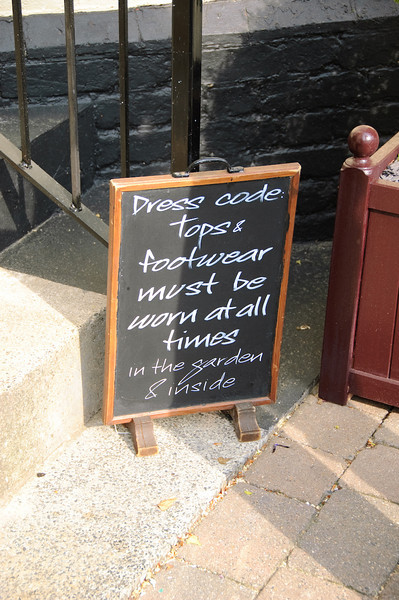 Dress code:
Tops &
footwear
must be
worn at all
times
in the garden
& inside